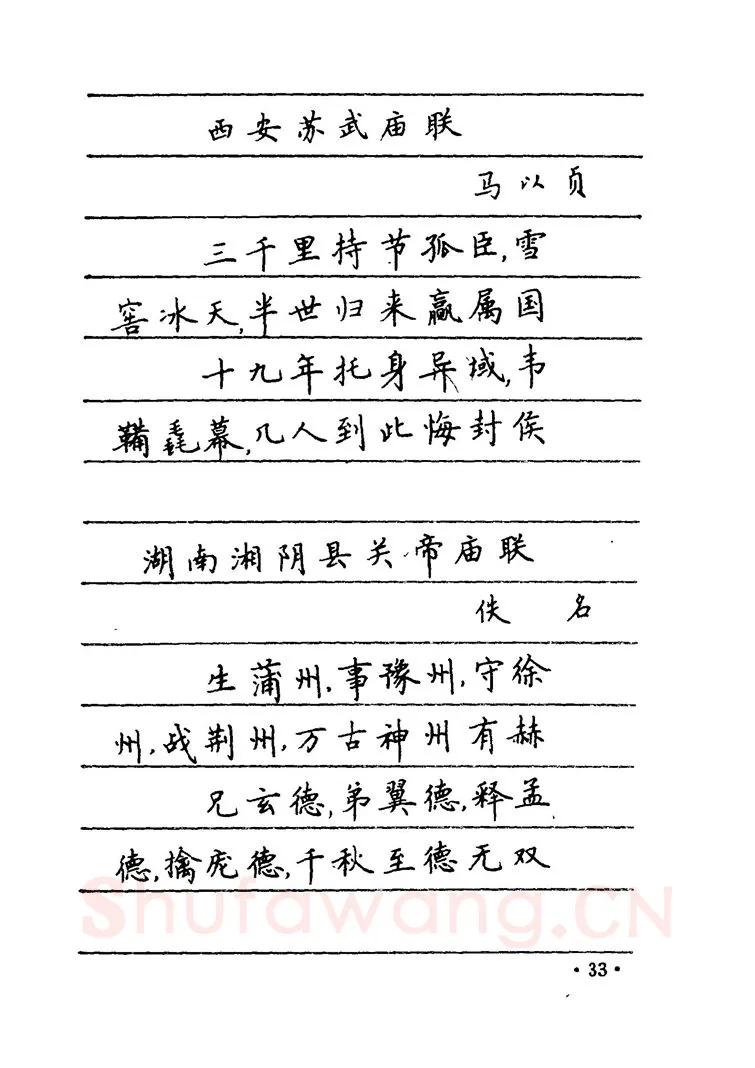 西安苏武庙联
马以贞
三千里持节孤臣,雪
窖冰天,半世归来赢属国
十九年托身异域,韦
鞲毳幕,几人到此悔封侯
湖南湘阴县关帝庙联
佚 名
生蒲州,事豫州,守徐
州,战荆州,万古神州有赫
兄玄德,弟翼德,释孟
德,擒庞德,千秋至德无双
Shufawang.CN
·33·